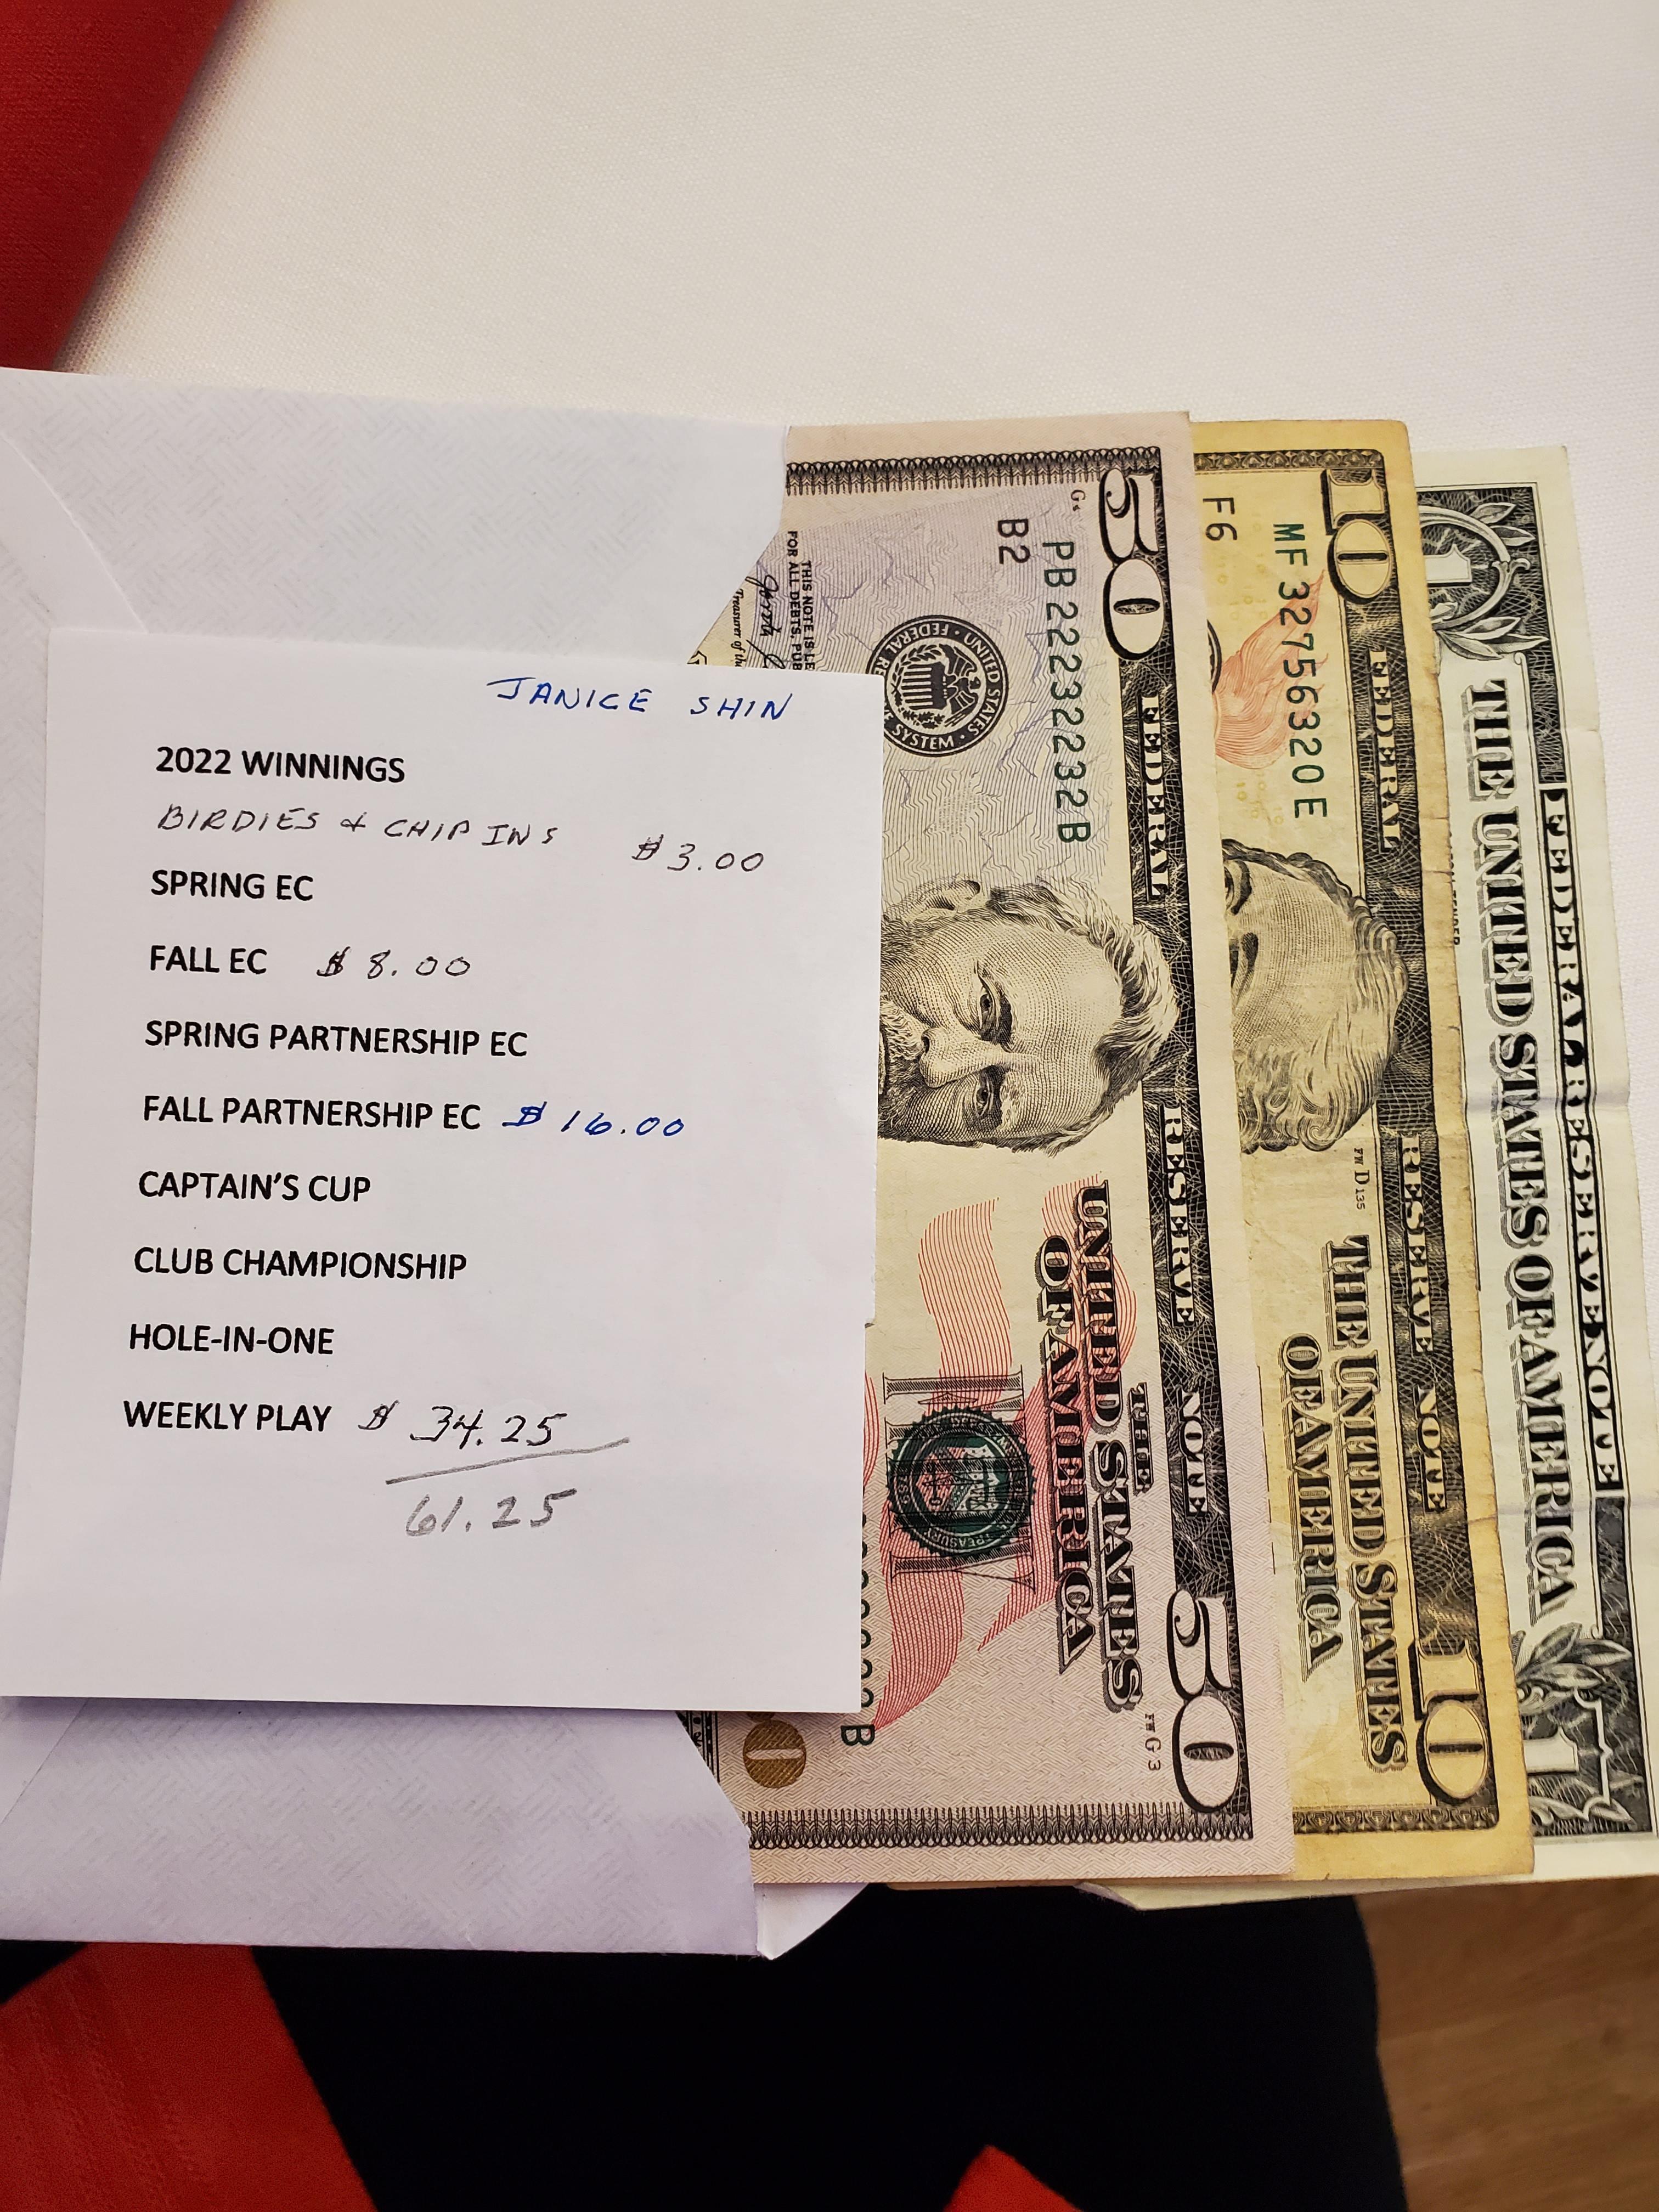 JANICE SHIN
2022 WINNINGS
BIRDIES & CHIP INS $3.00
SPRING EC
FALL EC $8.00
SPRING PARTNERSHIP EC
FALL PARTNERSHIP EC $16.00
CAPTAIN'S CUP
CLUB CHAMPIONSHIP
HOLE-IN-ONE
WEEKLY PLAY $ 34.25
61.25
50
FEDERAL RESERVE NOTE
PB22232232B
B2
THIS NOTE IS LE
FOR ALL DEBTS, PUB
Treasurer of th
UNITED STATES
FEDERAL RE
SYSTEM
THE
UNITED STATES
OF AMERICA
FW G 3
50
10
FEDERAL RESERVE NOTE
MF32756320E
F6
FW D 135
THE UNITED STATES
OF AMERICA
10
1
FEDERAL RESERVE NOTE
THE UNITED STATES OF AMERICA
1